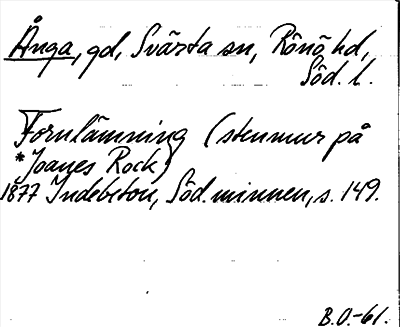 Ånga, gd, Svärta sn, Rönö hd,
Söd. l.
Fornlämning (stenmur på
*Joanes Rock)
1877 Indebetou, Söd. minnen, s. 149.
B.O.-61.